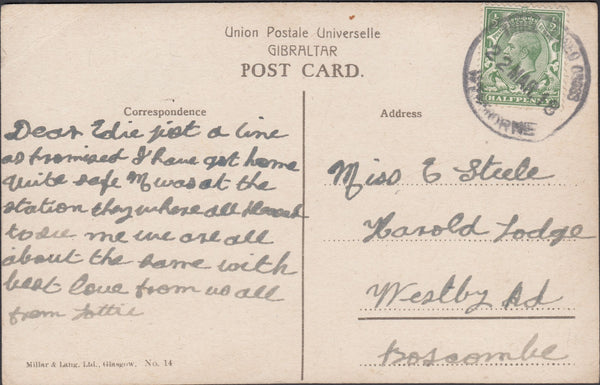 Union Postale Universelle
GIBRALTAR
POST CARD.
HALFPENNY
Correspondence
Address
Dear Edie just a line
as promised I have got home
quite safe M was at the
station they where all pleased
to see me we are all
about the same with
best love from us all
from Lottie
Miss E Steele
Harold Lodge
Westby Rd
Boscombe
Millar & Lang, Ltd., Glasgow. No. 14